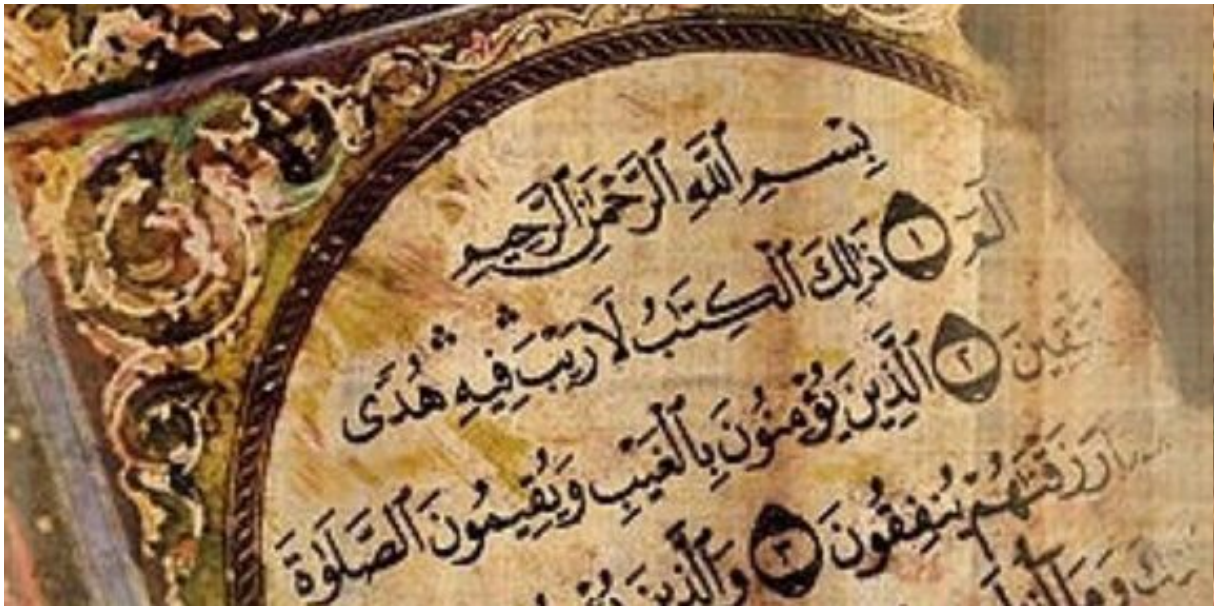 بِسْمِ ٱللَّهِ ٱلرَّحْمَٰنِ ٱلرَّحِيمِ
الٓمٓ ١ ذَٰلِكَ ٱلْكِتَٰبُ لَا رَيْبَ ۛ فِيهِ ۛ هُدًى
٢ ٱلَّذِينَ يُؤْمِنُونَ بِٱلْغَيْبِ وَيُقِيمُونَ ٱلصَّلَوٰةَ
رَزَقْنَٰهُمْ يُنفِقُونَ ٣ وَٱلَّذِينَ